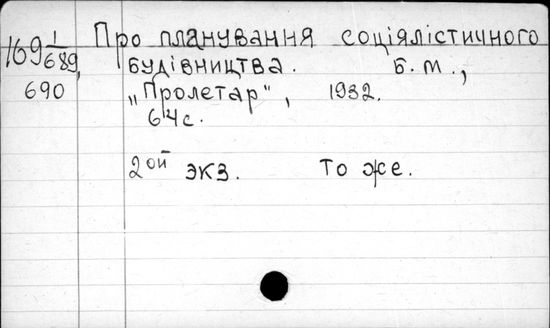 169 1/689, Про планування соціялістичного
690 будівництва. Б.м.,
„Пролетар", 1932.
64с.
2ой экз. То же.